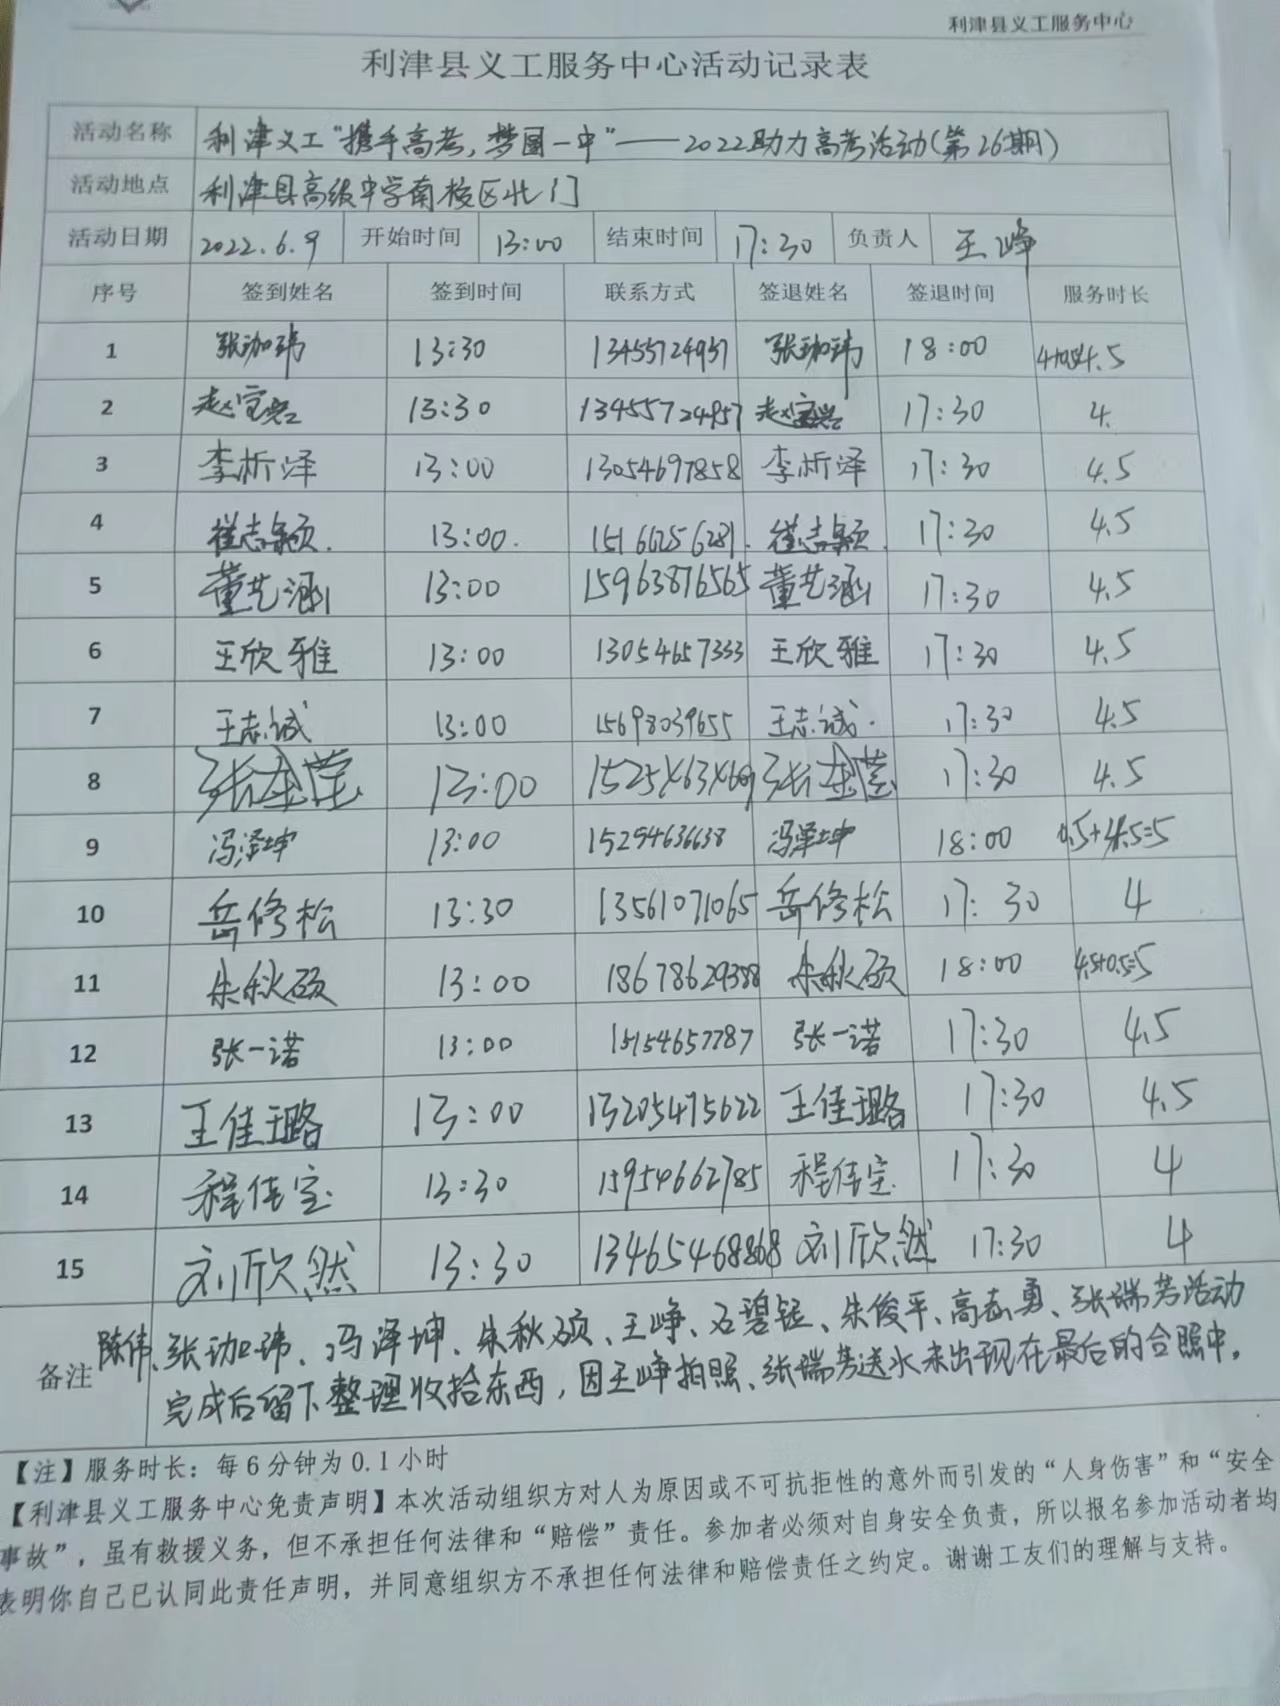 利津县义工服务中心
利津县义工服务中心活动记录表
活动名称 利津义工“携手高考,梦圆一中”——2022助力高考活动(第26期)
活动地点 利津县高级中学南校区北门
活动日期 2022.6.9 开始时间 13:00 结束时间 17:30 负责人 王峥
序号 签到姓名 签到时间 联系方式 签退姓名 签退时间 服务时长
1 张珈玮 13:30 13455724957 张珈玮 18:00 4+0.5=4.5
2 赵宝兴 13:30 13455724957 赵宝兴 17:30 4.
3 李析泽 13:00 13054697858 李析泽 17:30 4.5
4 崔志颖. 13:00. 15166256281. 崔志颖. 17:30 4.5
5 董艺涵 13:00 15963876565 董艺涵 17:30 4.5
6 王欣雅 13:00 13054657333 王欣雅 17:30 4.5
7 王志诚 13:00 15698039655 王志诚. 17:30 4.5
8 13:00 17:30 4.5
9 冯泽坤 13:00 15294636638 冯泽坤 18:00 0.5+4.5=5
10 岳修松 13:30 13561071065 岳修松 17:30 4
11 朱秋硕 13:00 18678629388 朱秋硕 18:00 4.5+0.5=5
12 张一诺 13:00 15154657787 张一诺 17:30 4.5
13 王佳璐 13:00 13205475622 王佳璐 17:30 4.5
14 程佳宝 13:30 15954662785 程佳宝 17:30 4
15 刘欣然 13:30 13465468868 刘欣然 17:30 4
备注 陈伟、张珈玮、冯泽坤、朱秋硕、王峥、石碧钰、朱俊平、高志勇、张瑞芳活动
完成后留下整理收拾东西,因王峥拍照、张瑞芳送水未出现在最后的合照中。
【注】服务时长:每6分钟为0.1小时
【利津县义工服务中心免责声明】本次活动组织方对人为原因或不可抗拒性的意外而引发的“人身伤害”和“安全
事故”,虽有救援义务,但不承担任何法律和“赔偿”责任。参加者必须对自身安全负责,所以报名参加活动者均
表明你自己已认同此责任声明,并同意组织方不承担任何法律和赔偿责任之约定。谢谢工友们的理解与支持。